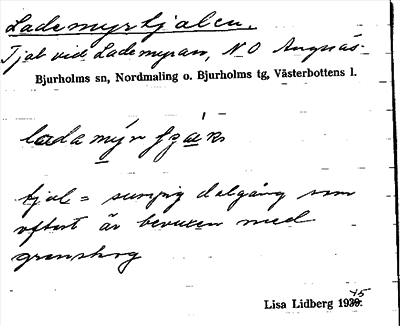 Lademyrkjalen.
Tjal vid Lademyran, N O Angnäs-
Bjurholms sn, Nordmaling o. Bjurholms tg, Västerbottens l.
kjal = sumpig dalgång som
oftast är bevuxen med
granskog
Lisa Lidberg 1945